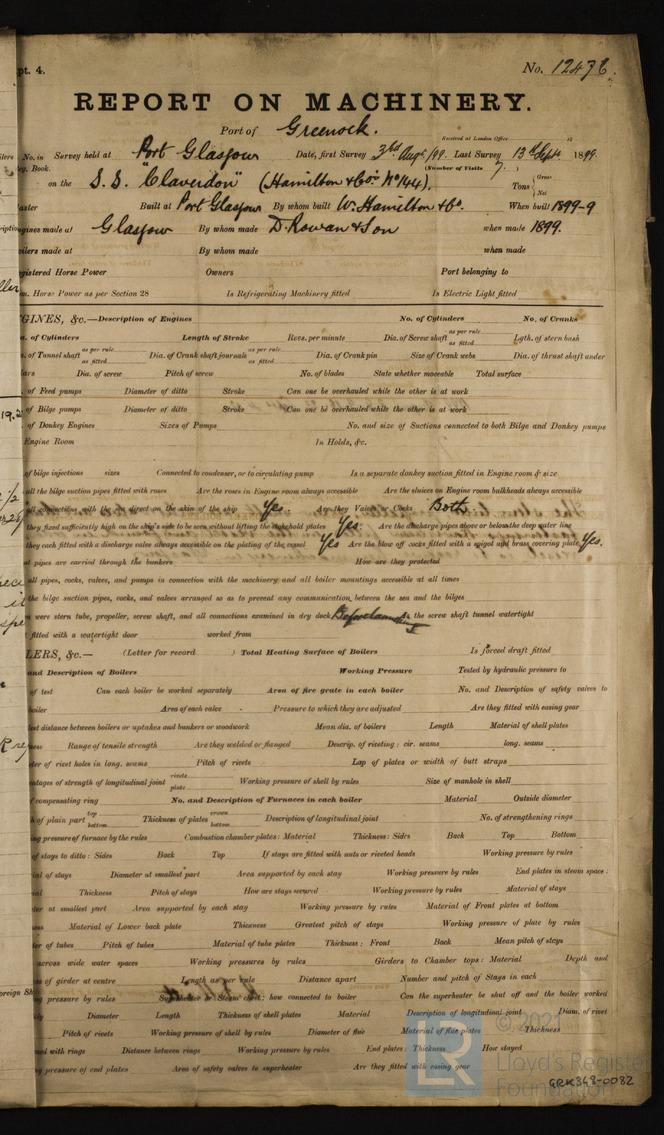 pt. 4.
No. 12478.
REPORT ON MACHINERY.
Port of Greenock.
Received at London Office
No. in Survey held at Port Glasgow Date, first Survey 3rd Augt/99. Last Survey 13th Sept 1899.
Reg. Book. (Number of Visits 7.)
on the S.S. "Claverdon" (Hamilton & Co's No 144). Tons Gross Net
Master Built at Port Glasgow By whom built W. Hamilton & Co. When built 1899-9
Engines made at Glasgow By whom made D. Rowan & Son when made 1899.
Boilers made at By whom made when made
Registered Horse Power Owners Port belonging to
m. Horse Power as per Section 28 Is Refrigerating Machinery fitted Is Electric Light fitted
GINES, &c.—Description of Engines No. of Cylinders No. of Cranks
a. of Cylinders Length of Stroke Revs. per minute Dia. of Screw shaft as per rule as fitted Lgth. of stern bush
a. of Tunnel shaft as per rule as fitted Dia. of Crank shaft journals as per rule as fitted Dia. of Crank pin Size of Crank webs Dia. of thrust shaft under
lars Dia. of screw Pitch of screw No. of blades State whether moveable Total surface
. of Feed pumps Diameter of ditto Stroke Can one be overhauled while the other is at work
. of Bilge pumps Diameter of ditto Stroke Can one be overhauled while the other is at work
. of Donkey Engines Sizes of Pumps No. and size of Suctions connected to both Bilge and Donkey pumps
Engine Room In Holds, &c.
of bilge injections sizes Connected to condenser, or to circulating pump Is a separate donkey suction fitted in Engine room & size
all the bilge suction pipes fitted with roses Are the roses in Engine room always accessible Are the sluices on Engine room bulkheads always accessible
all connections with the sea direct on the skin of the ship Yes. Are they Valves or Cocks Both
they fixed sufficiently high on the ship's side to be seen without lifting the stokehold plates Yes. Are the discharge pipes above or below the deep water line
they each fitted with a discharge valve always accessible on the plating of the vessel Yes Are the blow off cocks fitted with a spigot and brass covering plate Yes.
at pipes are carried through the bunkers How are they protected
all pipes, cocks, valves, and pumps in connection with the machinery and all boiler mountings accessible at all times
the bilge suction pipes, cocks, and valves arranged so as to prevent any communication between the sea and the bilges
n were stern tube, propeller, screw shaft, and all connections examined in dry dock Before launching Is the screw shaft tunnel watertight
fitted with a watertight door worked from
LERS, &c.— (Letter for record ) Total Heating Surface of Boilers Is forced draft fitted
and Description of Boilers Working Pressure Tested by hydraulic pressure to
of test Can each boiler be worked separately Area of fire grate in each boiler No. and Description of safety valves to
boiler Area of each valve Pressure to which they are adjusted Are they fitted with easing gear
lest distance between boilers or uptakes and bunkers or woodwork Mean dia. of boilers Length Material of shell plates
ness Range of tensile strength Are they welded or flanged Descrip. of riveting: cir. seams long. seams
ter of rivet holes in long. seams Pitch of rivets Lap of plates or width of butt straps
entages of strength of longitudinal joint rivets plate Working pressure of shell by rules Size of manhole in shell
of compensating ring No. and Description of Furnaces in each boiler Material Outside diameter
h of plain part top bottom Thickness of plates crown bottom Description of longitudinal joint No. of strengthening rings
ing pressure of furnace by the rules Combustion chamber plates: Material Thickness: Sides Back Top Bottom
of stays to ditto: Sides Back Top If stays are fitted with nuts or riveted heads Working pressure by rules
ial of stays Diameter at smallest part Area supported by each stay Working pressure by rules End plates in steam space:
ial Thickness Pitch of stays How are stays secured Working pressure by rules Material of stays
ter at smallest part Area supported by each stay Working pressure by rules Material of Front plates at bottom
ness Material of Lower back plate Thickness Greatest pitch of stays Working pressure of plate by rules
ter of tubes Pitch of tubes Material of tube plates Thickness: Front Back Mean pitch of stays
across wide water spaces Working pressures by rules Girders to Chamber tops: Material Depth and
ess of girder at centre Length as per rule Distance apart Number and pitch of Stays in each
ng pressure by rules Superheater or Steam chest; how connected to boiler Can the superheater be shut off and the boiler worked
ely Diameter Length Thickness of shell plates Material Description of longitudinal joint Diam. of rivet
Pitch of rivets Working pressure of shell by rules Diameter of flue Material of flue plates Thickness
ned with rings Distance between rings Working pressure by rules End plates: Thickness How stayed
ng pressure of end plates Area of safety valves to superheater Are they fitted with easing gear
© 2021
Lloyd's Register
Foundation
GRK368-0082